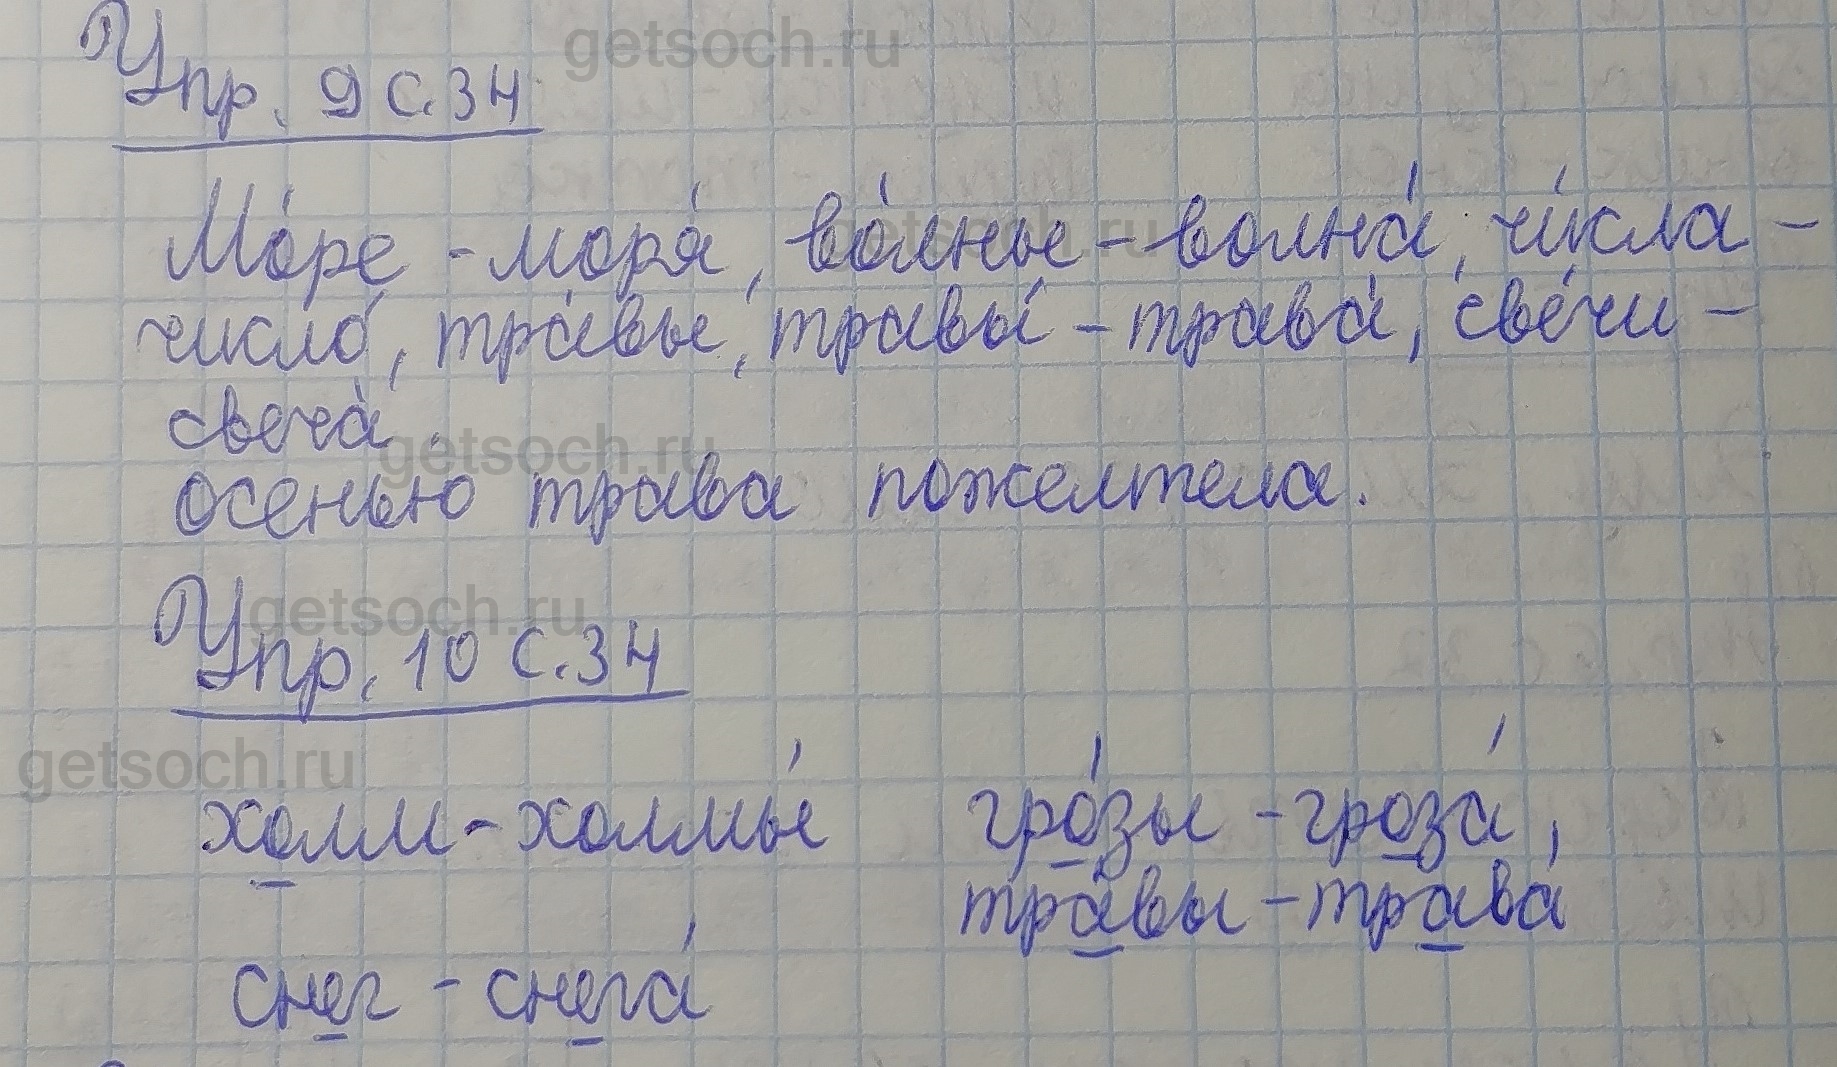 getsoch.ru
Упр. 9 с. 34
Мо́ре - моря́, во́лны - волна́, чи́сла -
getsoch.ru
число́, тра́вы, травы́ - трава́, све́чи -
свеча́.
getsoch.ru
осенью трава пожелтела.
getsoch.ru
Упр. 10 с. 34
getsoch.ru
холм - холмы́ гро́зы - гроза́,
тра́вы - трава́
снег - снега́